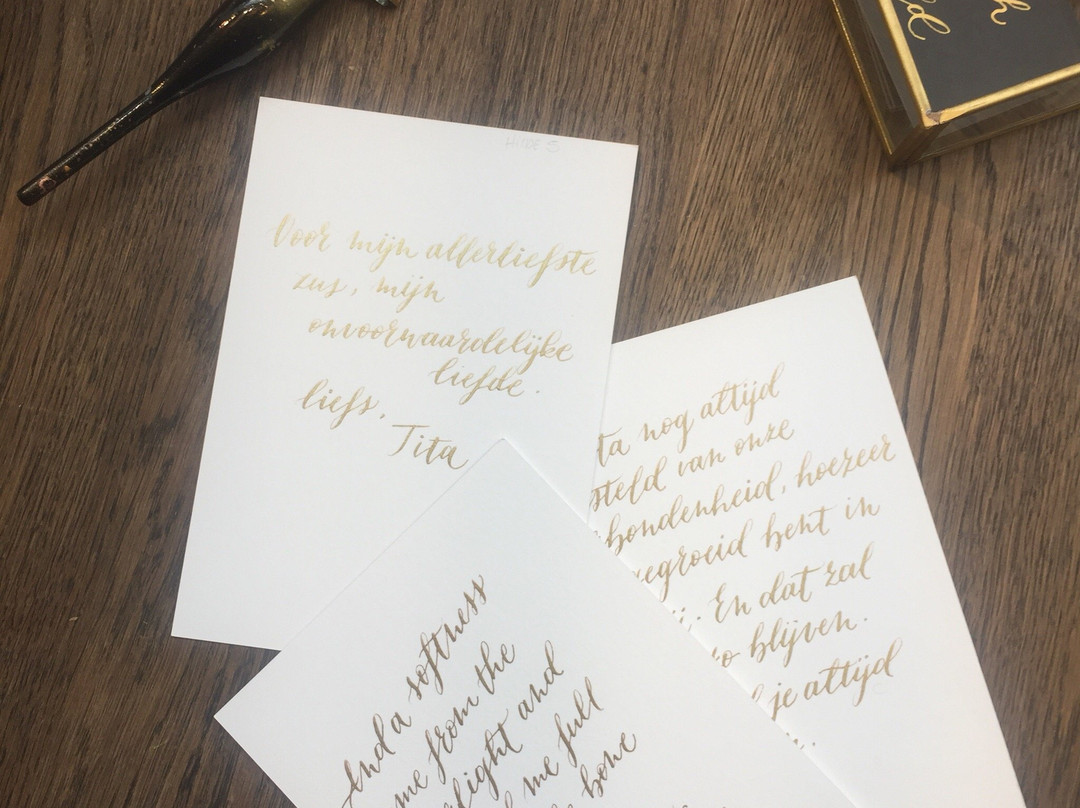 HILDE S
Voor mijn allerliefste
zus, mijn
onvoorwaardelijke
liefde.
liefs,
Tita
ta nog altijd
steld van onze
bondenheid, hoezeer
gegroeid bent in
En dat zal
zo blijven.
je altijd
And a softness
me from the
light and
me full
bone